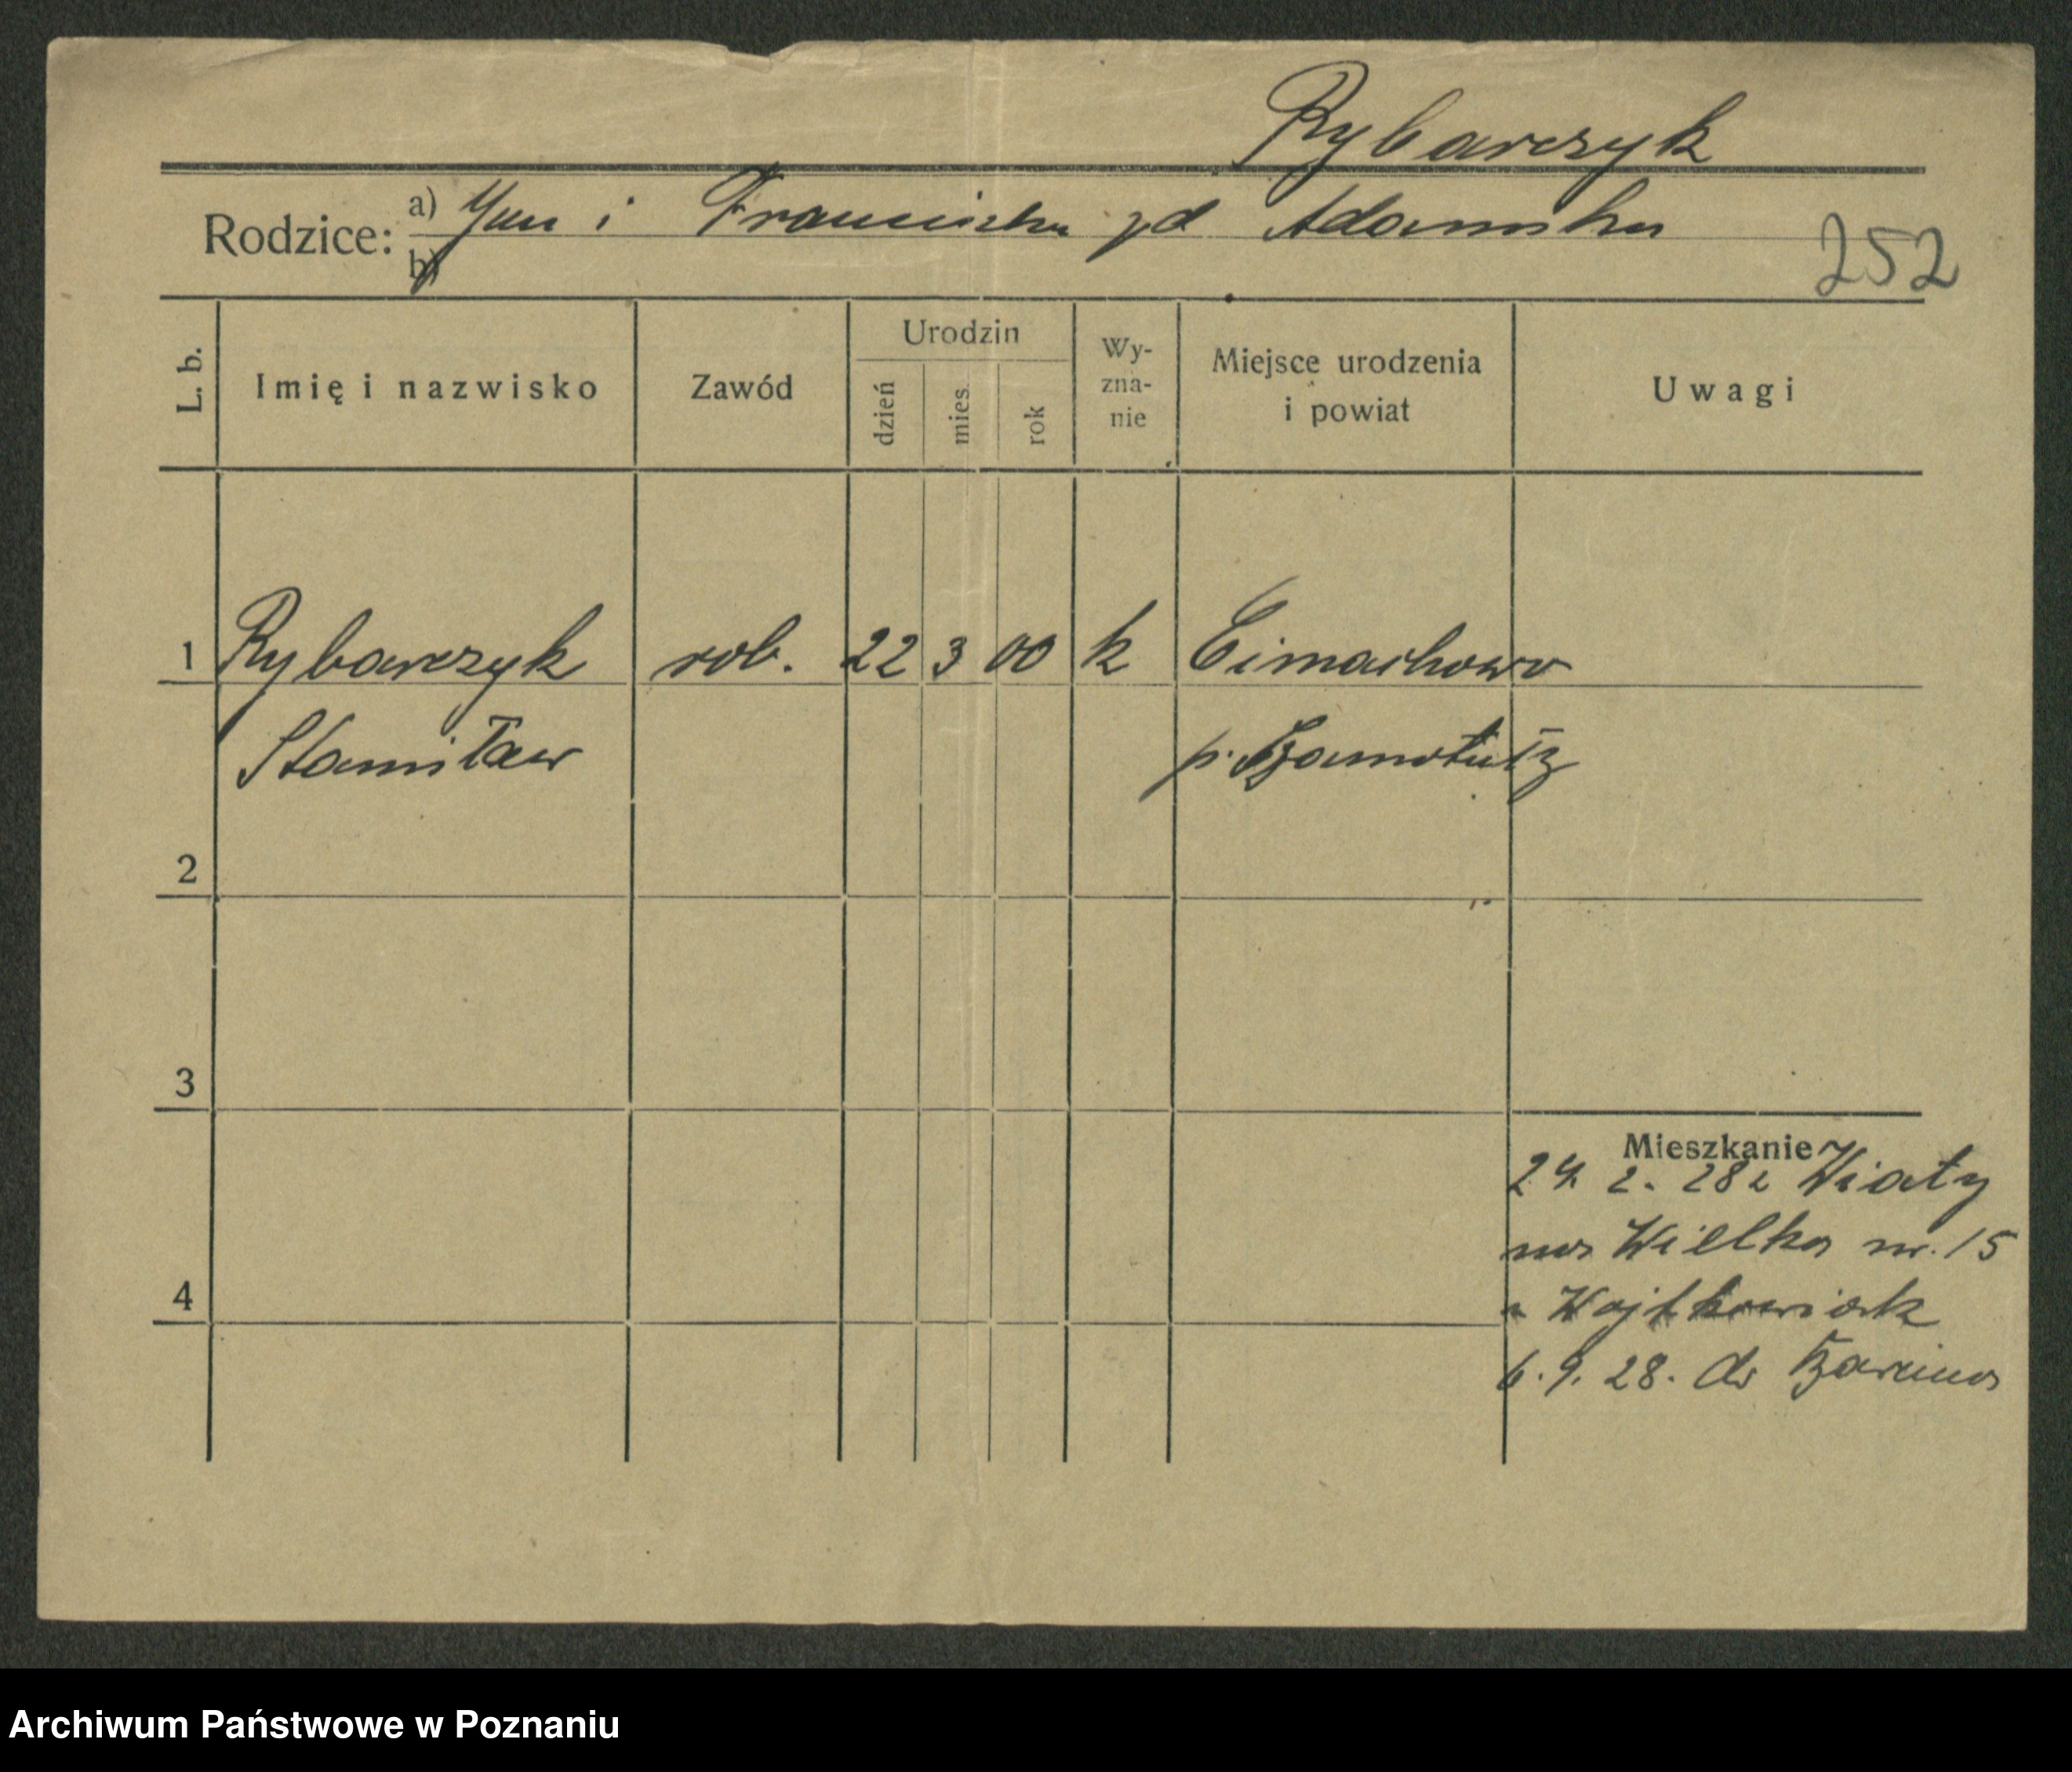 Rybarczyk
Rodzice: a) Jan i Franciszka zd Adamska
b)
252
L. b.
Imię i nazwisko
Zawód
Urodzin
dzień
mies.
rok
Wy-
zna-
nie
Miejsce urodzenia
i powiat
Uwagi
1 Rybarczyk rob. 22 3 00 k Cimachowo
Stanisław p. Szamotuły
2
3
4
Mieszkanie
24. 2. 28 z
Wielka nr. 15
u Wojtkowiak
6. 9. 28. do
Archiwum Państwowe w Poznaniu